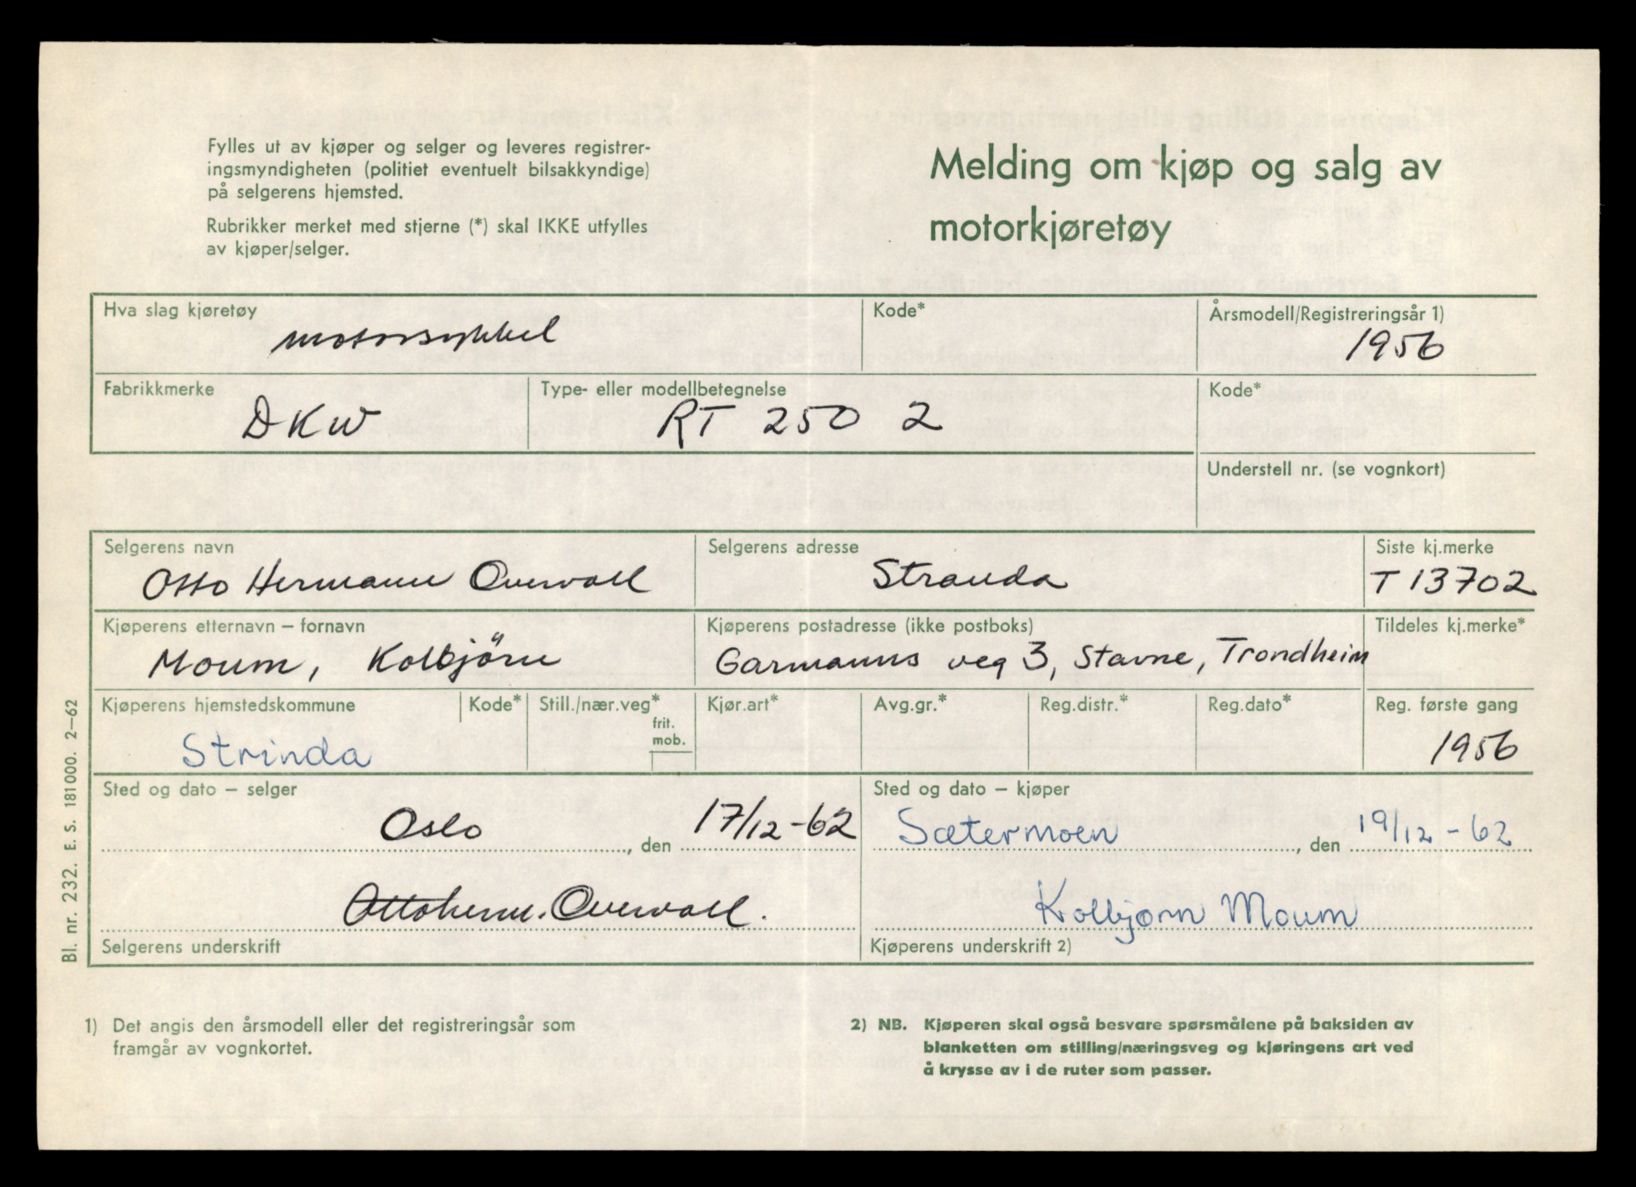 Fylles ut av kjøper og selger og leveres registrer-
ingsmyndigheten (politiet eventuelt bilsakkyndige)
på selgerens hjemsted.
Rubrikker merket med stjerne (*) skal IKKE utfylles
av kjøper/selger.
Melding om kjøp og salg av
motorkjøretøy
Hva slag kjøretøy
motorsykkel
Kode*
Årsmodell/Registreringsår 1)
1956
Fabrikkmerke
DKW
Type- eller modellbetegnelse
RT 250 2
Kode*
Understell nr. (se vognkort)
Selgerens navn
Otto Hermann Overvoll
Selgerens adresse
Stranda
Siste kj.merke
T 13702
Kjøperens etternavn – fornavn
Moum, Kolbjörn
Kjøperens postadresse (ikke postboks)
Garmanns veg 3, Stavne, Trondheim
Tildeles kj.merke*
Kjøperens hjemstedskommune
Strinda
Kode*
Still./nær.veg*
frit.
mob.
Kjør.art*
Avg.gr.*
Reg.distr.*
Reg.dato*
Reg. første gang
1956
Sted og dato – selger
Oslo, den 17/12-62
Sted og dato – kjøper
Sætermoen, den 19/12-62
Ottoherm. Overvoll.
Selgerens underskrift
Kolbjørn Moum
Kjøperens underskrift 2)
Bl. nr. 232. E. S. 181000. 2–62
1) Det angis den årsmodell eller det registreringsår som
framgår av vognkortet.
2) NB. Kjøperen skal også besvare spørsmålene på baksiden av
blanketten om stilling/næringsveg og kjøringens art ved
å krysse av i de ruter som passer.